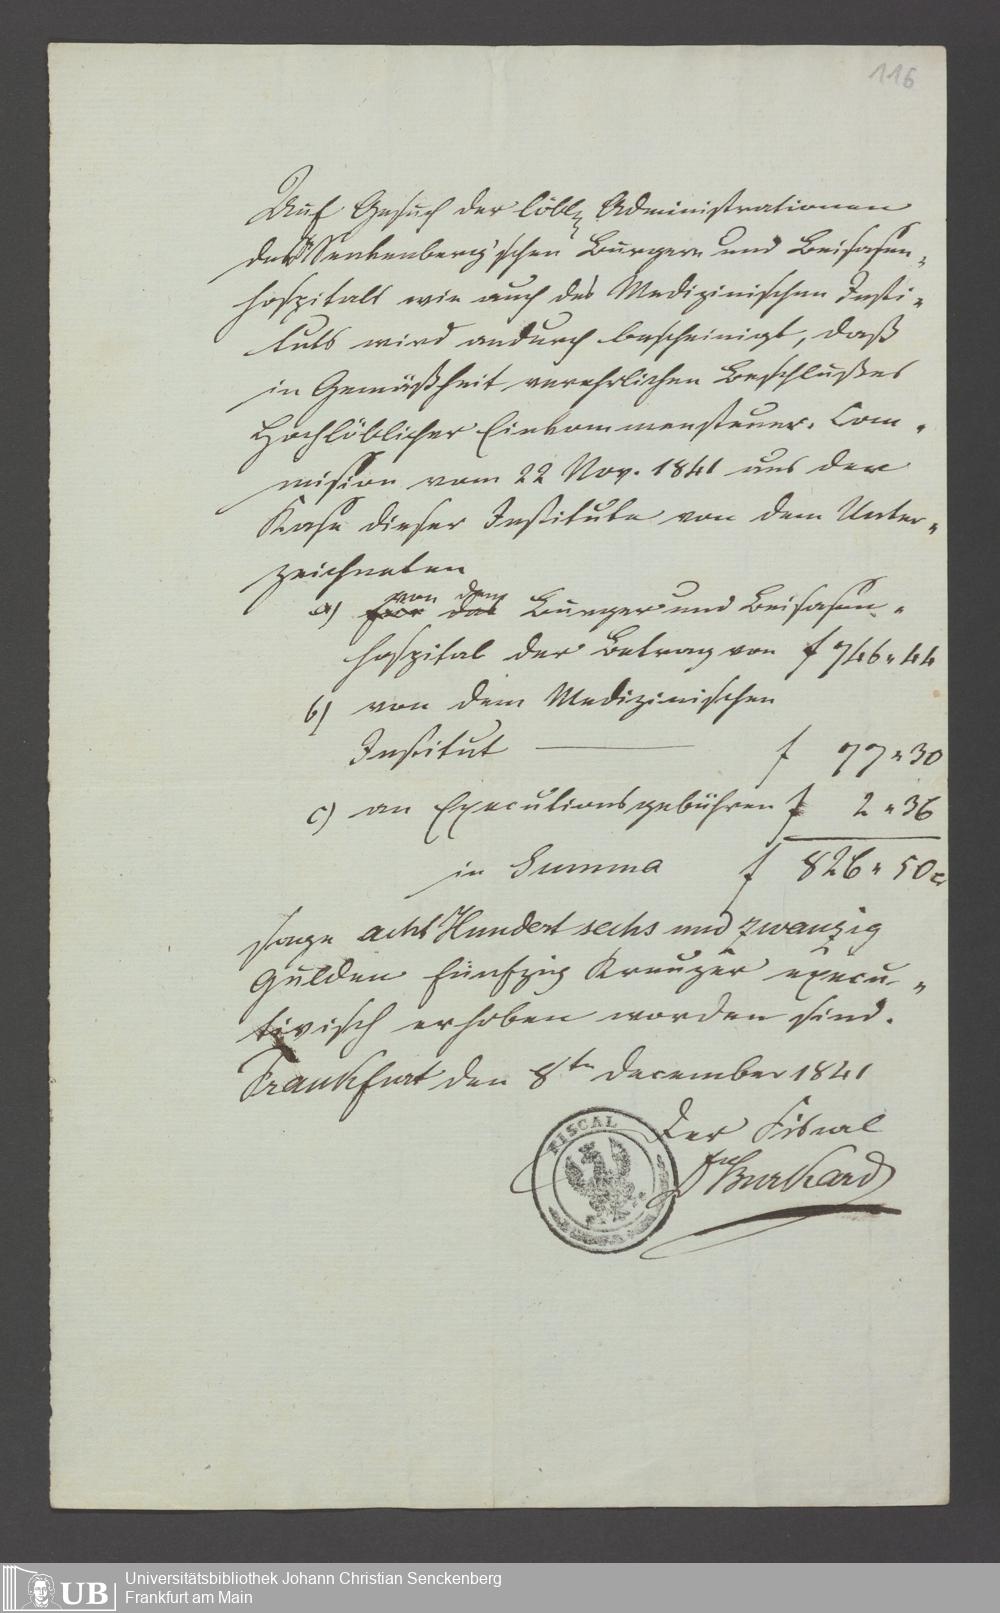 116
Auf Gesuch der löbl. Administrationen
des Senkenberg'schen Burger und Beisasen-
hospitals wie auch des Medizinischen Insti-
tuts wird andurch bescheinigt, daß
in Gemäßheit verehrlichen Beschlußes
Hochlöblicher Einkommensteuer-Com-
mision vom 22 Nov. 1841 aus der
Kasse dieser Institute von dem Unter-
zeichneten
a) von dem Burger und Beisasen-
hospital der Betrag von f 746 " 44
b) von dem Medizinischen
Institut — f 77 " 30
c) an Executionsgebühren f 2 " 36
in Summa f 826 " 50
sage acht Hundert sechs und zwanzig
Gulden fünfzig Kreuzer execu-
tivisch erhoben worden sind.
Frankfurt den 8ten December 1841
Der Fiscal
Burkard
FISCAL
UB
Universitätsbibliothek Johann Christian Senckenberg
Frankfurt am Main